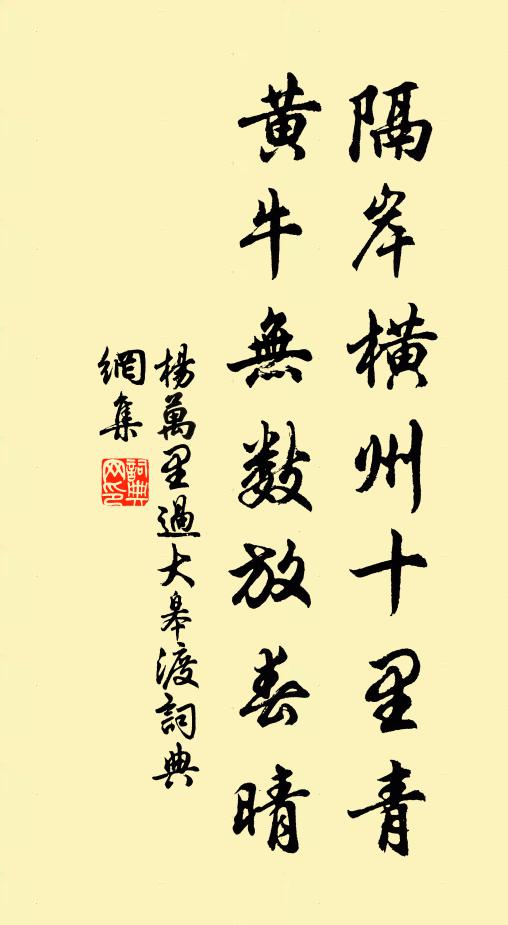 隔岸橫州十里青
黃牛無數放春晴
楊萬里過大皋渡詞典
網集
詞典
网印